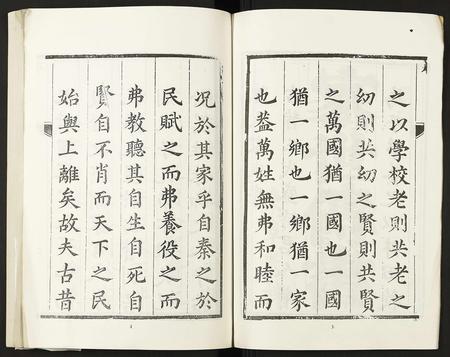 之以學校老則共老之
幼則共幼之賢則共賢
之萬國猶一國也一國
猶一鄉也一鄉猶一家
也蓋萬姓無弗和睦而
況於其家乎自秦之於
民賦之而弗養役之而
弗教聽其自生自死自
賢自不肖而天下之民
始與上離矣故夫古昔